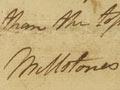 than the top
Millstones